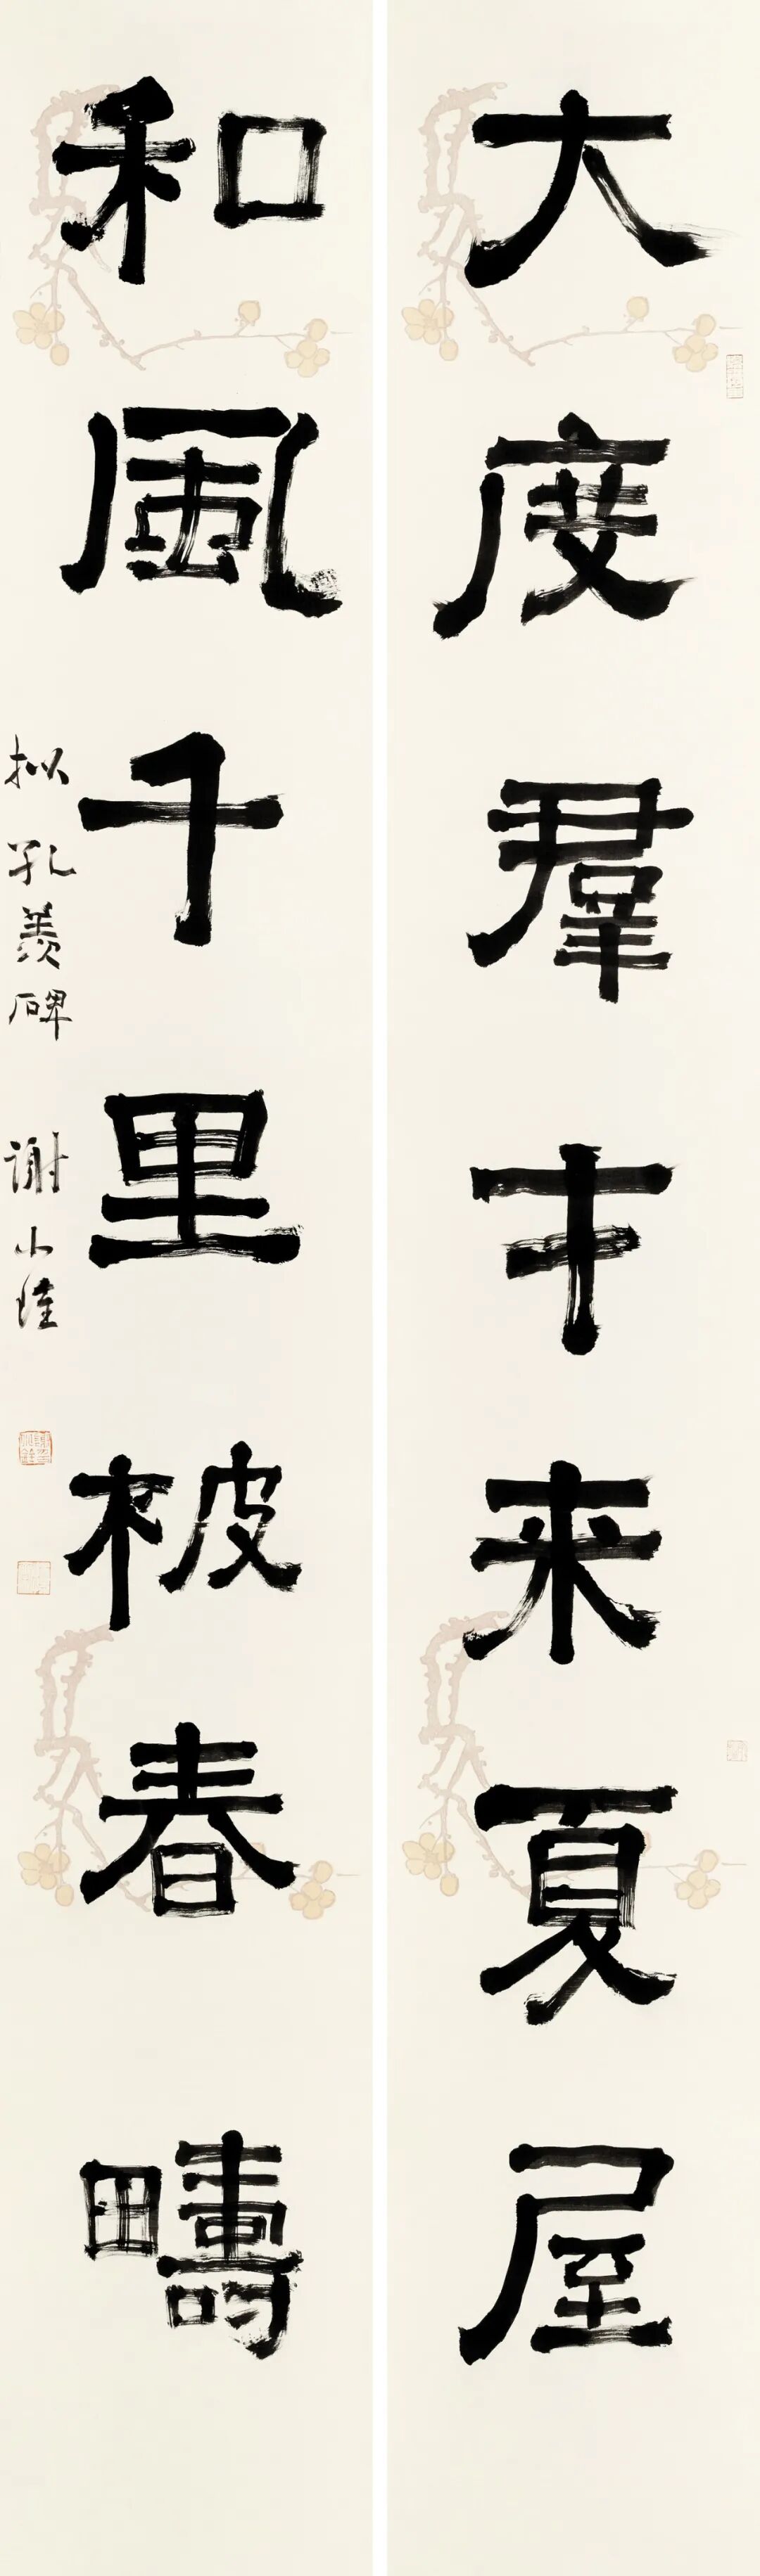 大度羣才来夏屋
和風千里被春疇
拟孔羡碑 谢小